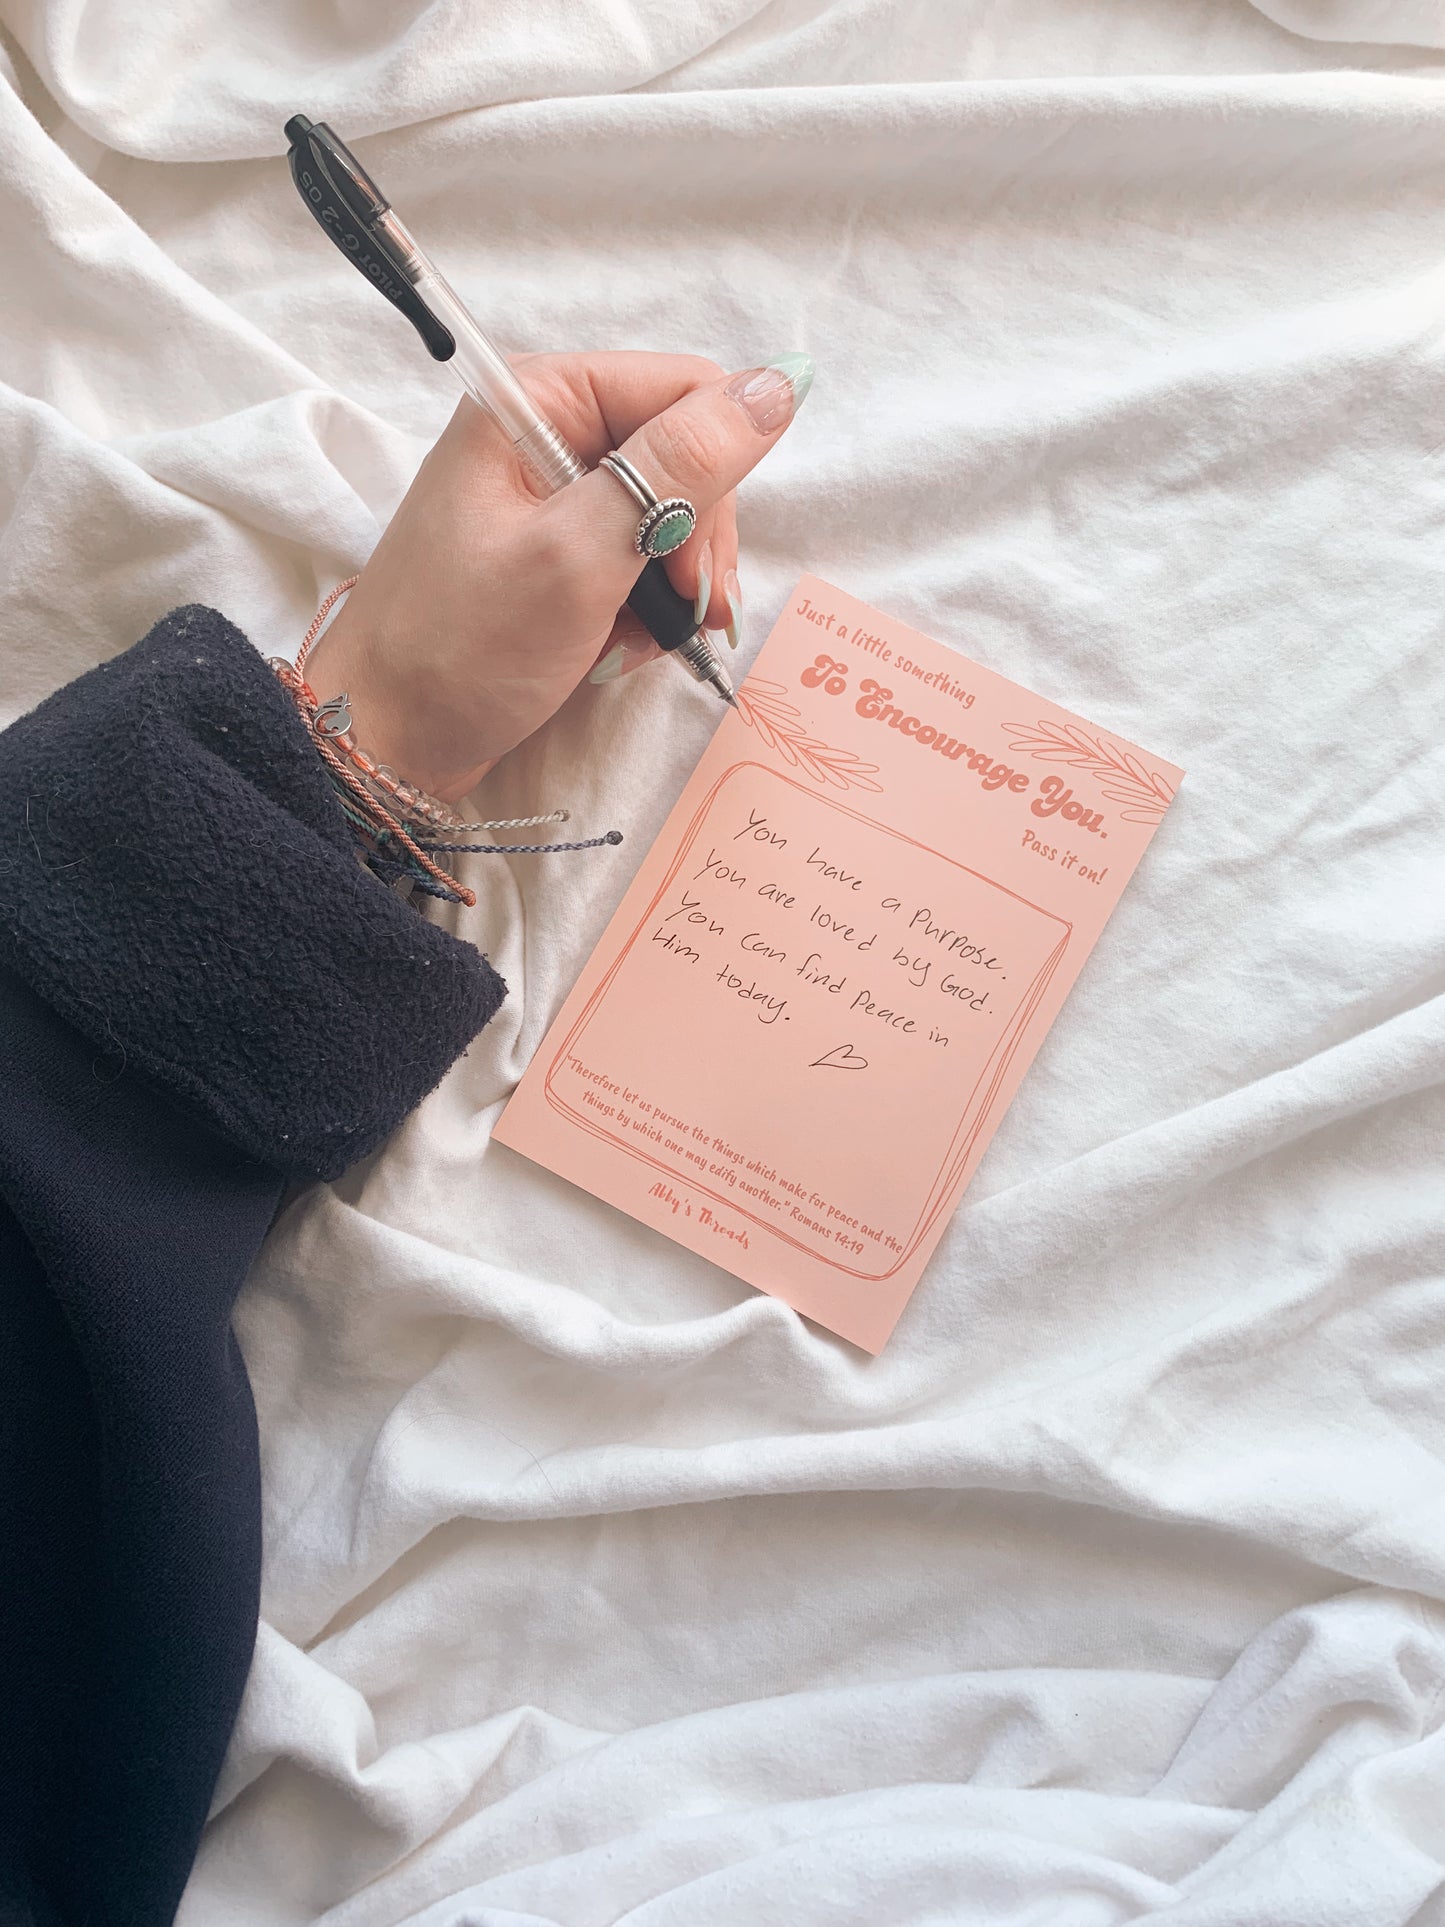 PILOT G-2 05
Just a little something
To Encourage You.
Pass it on!
You have a Purpose.
You are loved by God.
You can find Peace in
Him today.
"Therefore let us pursue the things which make for peace and the
things by which one may edify another." Romans 14:19
Abby's Threads